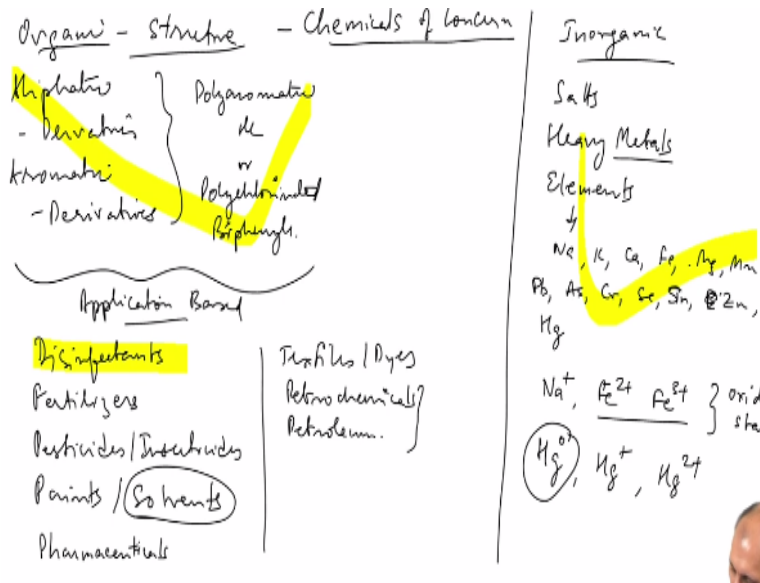 Organi - Structure - Chemicals of Concern
Aliphatic
- Derivatives
Aromatic
- Derivatives
Polyaromatic
HC
or
Polychlorinated
Biphenyls.
Application Based
Disinfectants
Fertilizers
Pesticides/Insecticides
Paints / Solvents
Pharmaceuticals
Textiles / Dyes
Petrochemicals
Petroleum.
Inorganic
Salts
Heavy Metals
Elements
Na, K, Ca, Fe, Mg, Mn
Pb, As, Cr, Se, Sn, Zn,
Hg
Na+, Fe2+ Fe3+ } oxid
sta
Hg0, Hg+, Hg2+